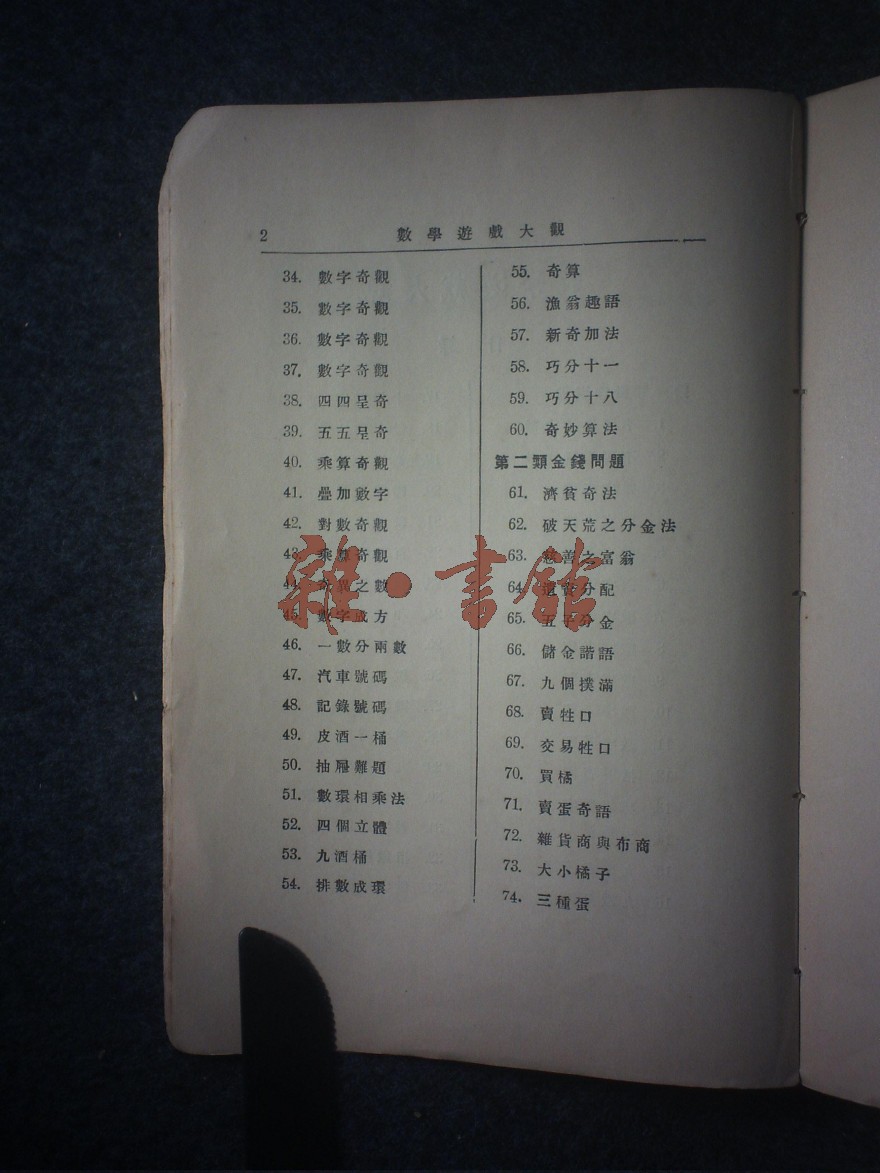 2
數學遊戲大觀
34. 數字奇觀
35. 數字奇觀
36. 數字奇觀
37. 數字奇觀
38. 四四呈奇
39. 五五呈奇
40. 乘算奇觀
41. 疊加數字
42. 對數奇觀
43. 乘算奇觀
44. 奇異之數
45. 數字成方
46. 一數分兩數
47. 汽車號碼
48. 記錄號碼
49. 皮酒一桶
50. 抽屜難題
51. 數環相乘法
52. 四個立體
53. 九酒桶
54. 排數成環
55. 奇算
56. 漁翁趣語
57. 新奇加法
58. 巧分十一
59. 巧分十八
60. 奇妙算法
第二類金錢問題
61. 濟貧奇法
62. 破天荒之分金法
63. 慈善之富翁
64. 遺資分配
65. 五子分金
66. 儲金諧語
67. 九個撲滿
68. 賣牲口
69. 交易牲口
70. 買橘
71. 賣蛋奇語
72. 雜貨商與布商
73. 大小橘子
74. 三種蛋
雜·書館